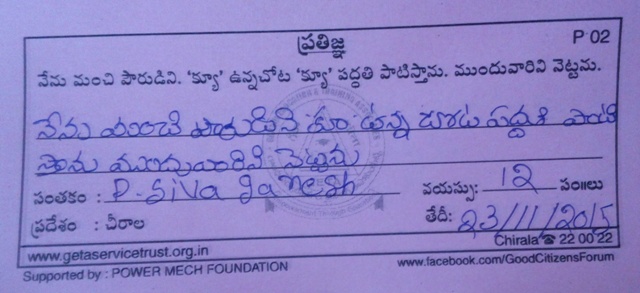 ప్రతిజ్ఞ P 02
నేను మంచి పౌరుడిని. 'క్యూ' ఉన్నచోట 'క్యూ' పద్ధతి పాటిస్తాను. ముందువారిని నెట్టను.
నేను మంచి పౌరుడిని క్యూ ఉన్న చోట పద్దతి పాటి
స్తాను ముందువారిని నెట్టను
సంతకం : P. Siva Ganesh వయస్సు: 12 సం॥లు
ప్రదేశం : చీరాల తేదీ: 23/11/2015
Chirala ☎ 22 00 22
www.getaservicetrust.org.in
Supported by : POWER MECH FOUNDATION www.facebook.com/GoodCitizensForum